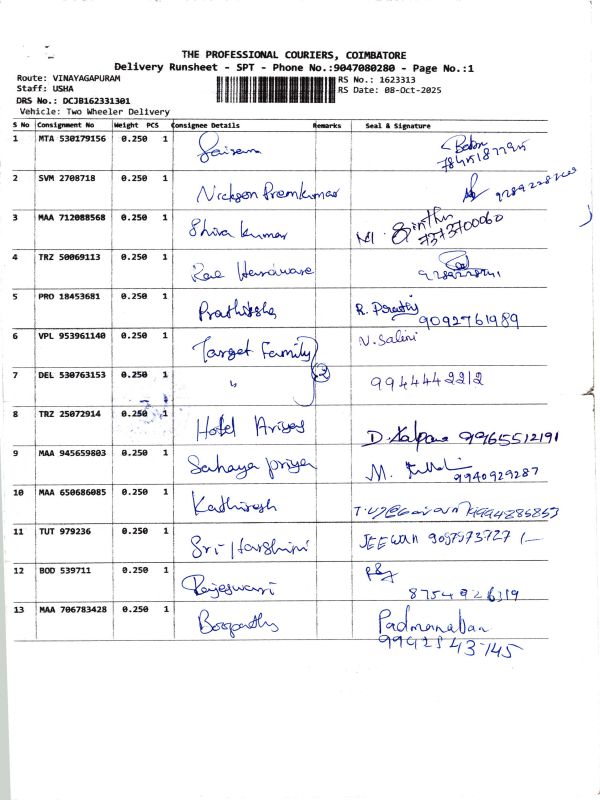 THE PROFESSIONAL COURIERS, COIMBATORE
Delivery Runsheet - SPT - Phone No.:9047080280 - Page No.:1
Route: VINAYAGAPURAM RS No.: 1623313
Staff: USHA RS Date: 08-Oct-2025
DRS No.: DCJB162331301
Vehicle: Two Wheeler Delivery
S No Consignment No Weight PCS Consignee Details Remarks Seal & Signature
1 MTA 530179156 0.250 1 Sairam
2 SVM 2708718 0.250 1 Nickson Premkumar
3 MAA 712088568 0.250 1 Shiva kumar 7373700060
4 TRZ 50069113 0.250 1
5 PRO 18453681 0.250 1 Prathiksha R. 9092761989
6 VPL 953961140 0.250 1 Target Family N. Salini
7 DEL 530763153 0.250 1 " 2 9944442212
8 TRZ 25072914 0.250 1 Hotel Ariyas D. Kalpana 9965512191
9 MAA 945659803 0.250 1 Sahaya priya M. 9940929287
10 MAA 650686085 0.250 1 Kathiresh
11 TUT 979236 0.250 1 Sri Harshini JEEWAN
12 BOD 539711 0.250 1 Rajeswari
13 MAA 706783428 0.250 1 Boopathy Padmanaban